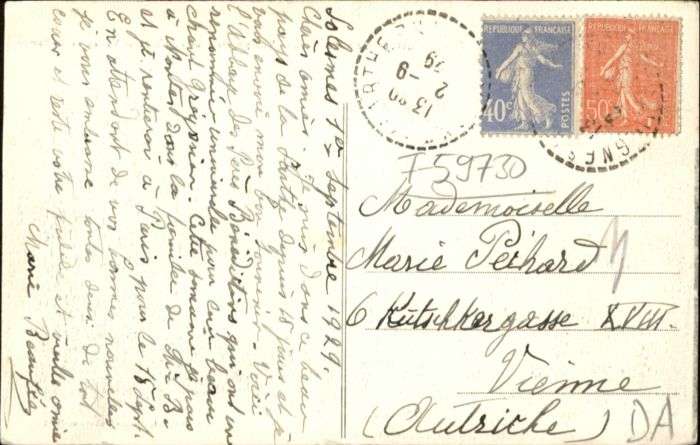 Solesmes 1er Septembre 1929.
Chère amie, je suis dans ce beau
pays de la Sarthe depuis 15 jours et je
vous envoie mon bon souvenir. Voici
l'Abbaye des Pères Bénédictins qui ont une
renommée universelle pour leur beau
chant grégorien. Cette semaine je vais
à dans la famille de
et je rentrerai à Paris pour le 15 Sept.
En attendant de vos bonnes nouvelles
je vous embrasse toutes deux de tout
cœur et reste votre fidèle et vieille amie
Marie
RÉPUBLIQUE FRANÇAISE
40c
POSTES
RÉPUBLIQUE FRANÇAISE
50c
SARTHE
13
2 -9
19
F 59730
Mademoiselle
Marie Péchard
6 Kutschkergasse XVIII.
Vienne
(Autriche)
DA